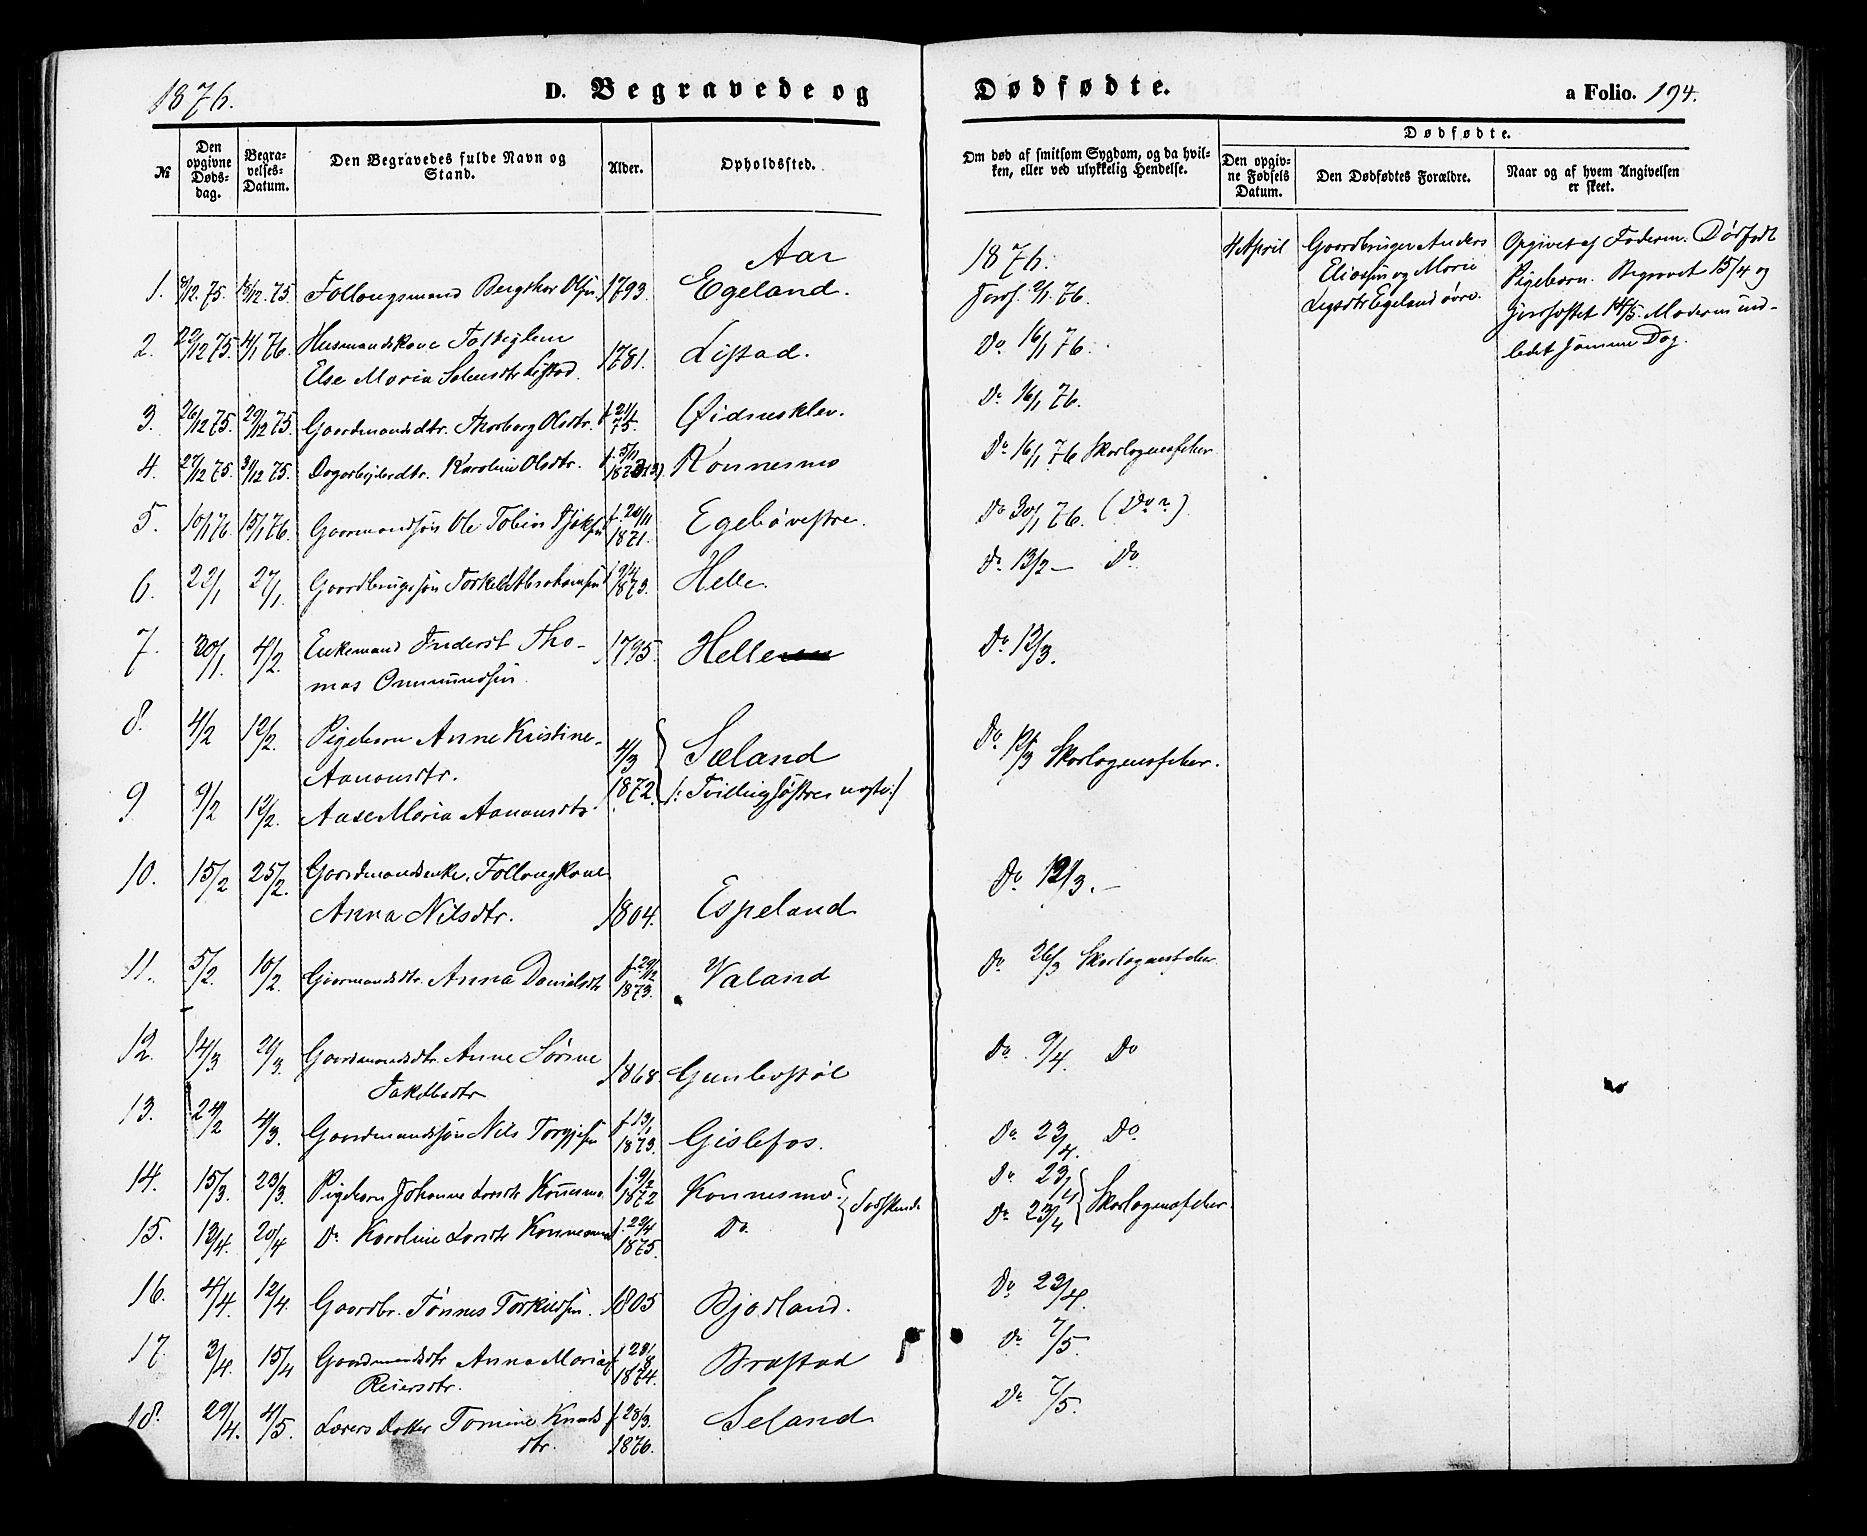 1876.
D. Begravede og Dødfødte.
a Folio. 194.
№
Den opgivne Døds-dag.
Begra-velses-Datum.
Den Begravedes fulde Navn og Stand.
Alder.
Opholdssted.
Om død af smitsom Sygdom, og da hvil-ken, eller ved ulykkelig Hendelse.
Dødfødte.
Den opgiv-ne Fødsels Datum.
Den Dødfødtes Forældre.
Naar og af hvem Angivelsen er skeet.
Aar 1876.
1. 8/12 75. 16/12 75. Follougsmand Olsen 1793. Egeland. 2/1 76.
4 April Gaardbruger Anders
Eliassen og Marie
Egeland øvre.
Opgivet af Faderen. Dødfødt
Pigebarn. Begravet 15/4 og
jordfæstet 14/5. Moderen ind-
ledet samme Dag.
2. 22/12 75. 4/1 76. Husmandskone
Else Maria Listad 1781. Listad. Do 16/1 76.
3. 26/12 75. 29/12 75. Gaardmandsdtr. Thorborg Olsdtr. f. 21/1 75. Øidnesklev. Do 16/1 76.
4. 27/12 75. 31/12 75. Dagarbeiderdtr. Karoline Olsdtr. f. 5/11 Konnesmo Do 16/1 76 Skarlagensfeber
5. 10/1 76. 15/1 76. Gaarmandssøn Ole Tobias f. 20/11 1871. Egebø vestre. Do 30/1 76. (Do)
6. 22/1 27/1. Gaardbrugssøn Torkel Abrahamsen 9/4 1873. Helle. Do 13/2 — Do
7. 30/1. 4/2. Enkemand Inderst Tho-
mas Ommundsen. 1795. Helle Do 12/3.
8. 4/2 12/2. Pigebarn Anne Kristine
Aanonsdtr. 4/3 1872. Sæland Do 12/3 Skarlagensfeber.
9 9/2 12/2. Aase Maria Aanonsdtr /: Tvillingsøstre
10. 15/2 25/2. Gaardmandsenke, Follougkone
Anna Nilsdtr. 1804. Espeland Do 12/3. —
11. 5/2. 10/2. Gaarmandsdtr. Anna Danielsdtr f. 29/12 1873. Valand Do 26/3 Skarlagensfeber
12. 14/3 20/3. Gaardmandsdtr. Anne Sørine
Jakobsdtr 1868. Gunlefstøl Do 9/4. Do
13. 24/2 4/3. Gaardmandssøn Nils Torgjesen f. 13/1 1873. Gislefos. Do 23/4. Do
14. 15/3. 23/3. Pigebarn Johanne Larsdtr Konnesmo f. 9/2 1872 Konnesmo Søskende Do 23/4 Skarlagensfeber.
15. 13/4. 20/4 Do Karoline Larsdtr Konnesmo f. 29/4 1875. Do. Do 23/4
16. 4/4. 12/4. Gaardbr. Tønnes Torkildsen. 1805 Bjordland. Do 23/4.
17. 3/4. 15/4 Gaardmandsdtr Anna Maria
Reiersdtr. f. 23/8 1874. Brastad Do 7/5.
18. 29/4. 4/5. Lærers Datter Tomine Knuds
dtr. f. 28/3. 1876. Seland Do 7/5.